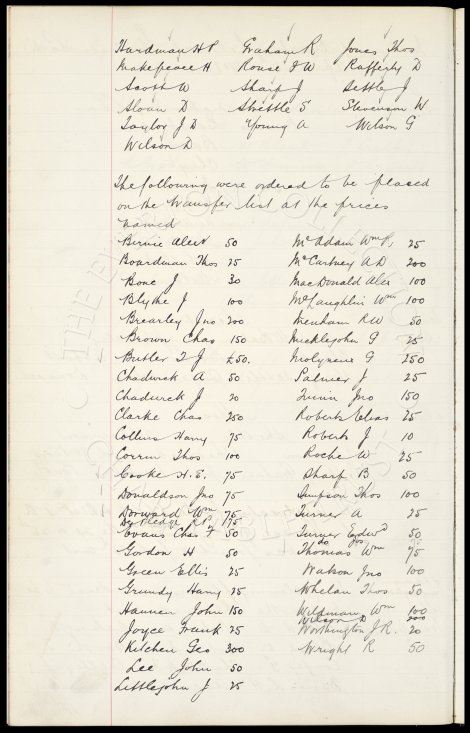 Hardman H P Graham R Jones Thos
Makepeace H Rouse F W Rafferty D
Scott W Sharp J Settle J
Sloan D Strettle S Stevenson W
Taylor J D Young A Wilson G
Wilson D
The following were ordered to be placed
on the transfer list at the prices
named
Birnie Alex 50 McAdam Wm P, 25
Boardman Thos 25 McCartney A D 200
Bone J 30 MacDonald Alex 100
Blythe J 100 McLaughlin Wm 100
Brearley Jno 200 Menham R W 50
Brown Chas 150 Mucklejohn G 25
Butler T J £50. Molyneux G 250
Chadwick A 50 Palmer J 25
Chadwick J 20 Quinn Jno 150
Clarke Chas 250 Roberts Elias 25
Collins Harry 75 Roberts J 10
Corrin Thos 100 Roche W 25
Cooke H. E. 75 Sharp B 50
Donaldson Jno 75 Simpson Thos 100
Dorward Wm 75 Turner A 25
75
Evans Chas F 50 Turner Edwd 50
Gordon H 50 Thomas Wm 75
Green Ellis 25 Watson Jno 100
Grundy Harry 25 Whelan Thos 50
Hannen John 150 Wildman Wm 100
Wilson D 200
Joyce Frank 25 Worthington J R. 20
Kitchen Geo 300 Wright R 50
Lee John 50
Littlejohn J 25